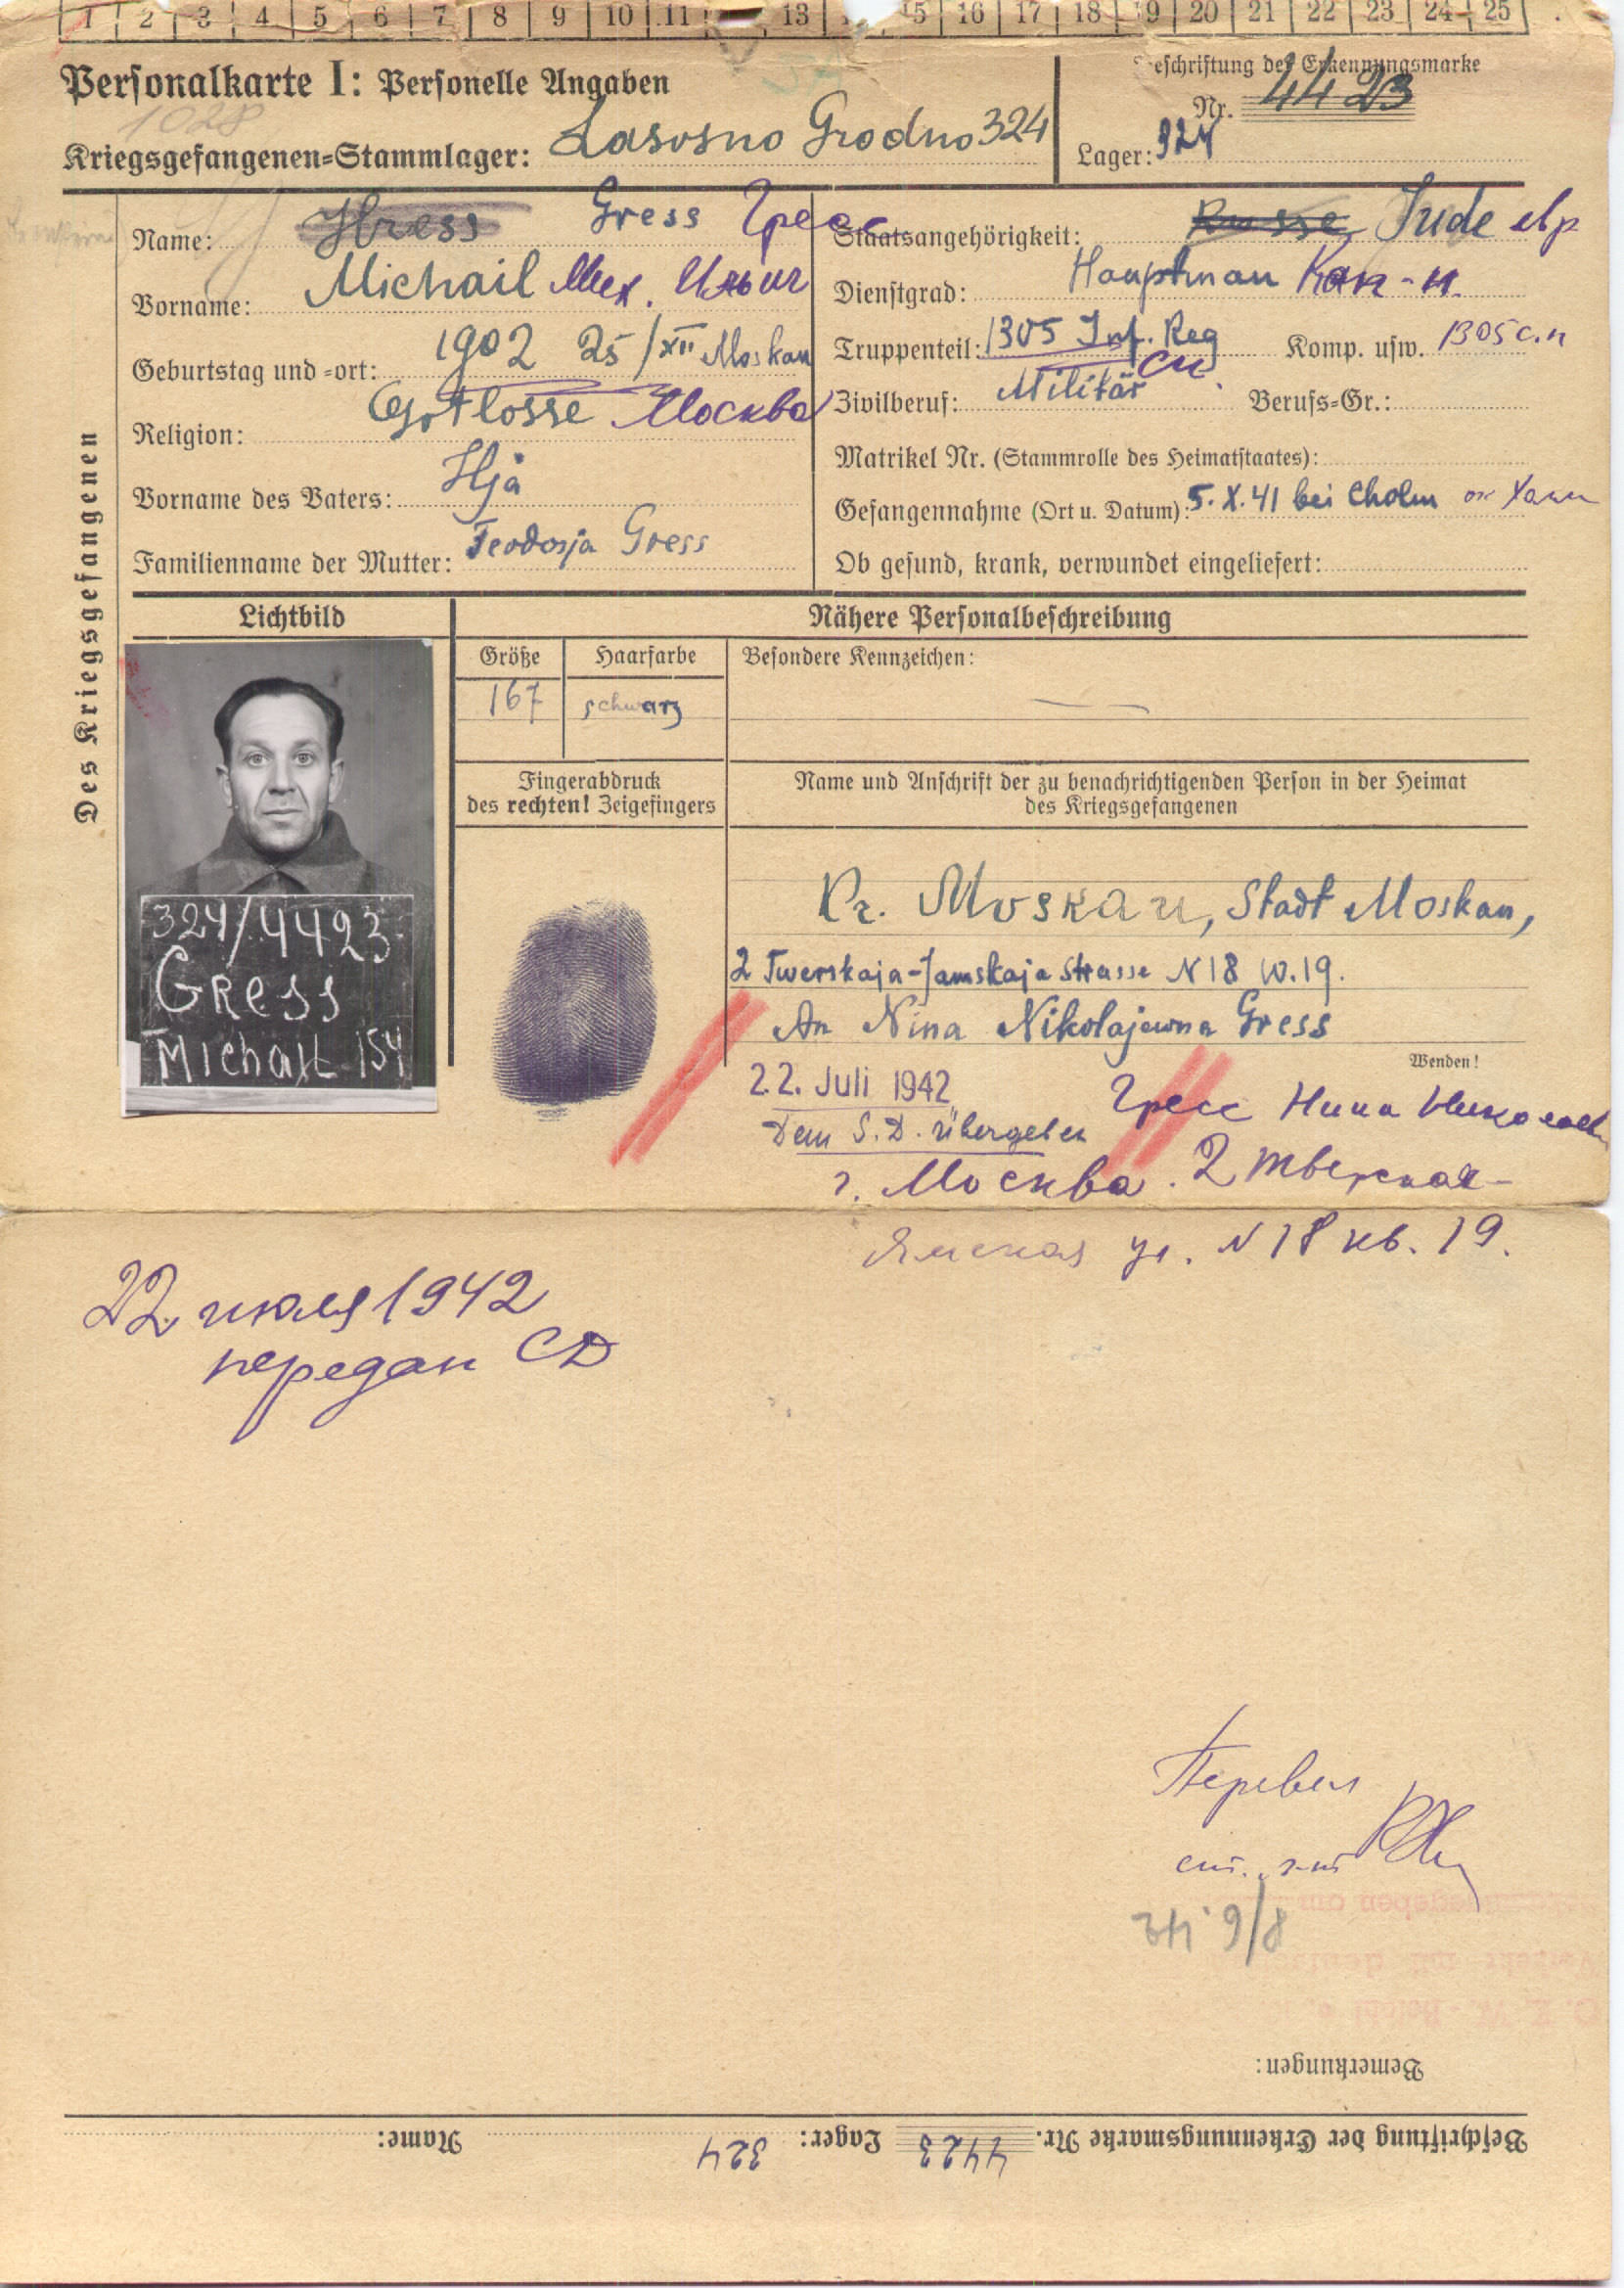 1 2 3 4 5 6 7 8 9 10 11 13 15 16 17 18 19 20 21 22 23 24 25
Personalkarte I: Personelle Angaben
1028
Kriegsgefangenen=Stammlager: Lasosno Grodno 324
eschriftung der Erkennungsmarke
Nr. 4423
Lager: 324
Des Kriegsgefangenen
Name: Hress Gress Гресс
Vorname: Michail Мих. Ильич
Geburtstag und =ort: 1902 25/XII Moskau
Religion: Gotlosse Москва
Vorname des Vaters: Ilja
Familienname der Mutter: Feodosja Gress
Staatsangehörigkeit: Russe Jude евр
Dienstgrad: Hauptman Кап-н.
Truppenteil: 1305 Inf. Reg Komp. usw. 1305 с.п
сп.
Zivilberuf: Militär Berufs=Gr.:
Matrikel Nr. (Stammrolle des Heimatstaates):
Gefangennahme (Ort u. Datum): 5.X.41 bei Cholm ок Холм
Ob gesund, krank, verwundet eingeliefert:
Lichtbild
324/4423
Gress
Michail 154
Nähere Personalbeschreibung
Größe Haarfarbe Besondere Kennzeichen:
167 schwarz —
Fingerabdruck
des rechten! Zeigefingers
Name und Anschrift der zu benachrichtigenden Person in der Heimat
des Kriegsgefangenen
Kr. Moskau, Stadt Moskau,
2 Twerskaja-Jamskaja Strasse N 18 W.19.
An Nina Nikolajewna Gress
Wenden!
22. Juli 1942
Dem S.D. übergeben
Гресс Нина Николаев
г. Москва. 2 Тверская-
Ямская ул. N 18 кв. 19.
22 июля 1942
передан СД
Перевел
ст. л-т
8/6.42
gegeben am
Verkehr mit deutsch
O.K.W.-Befehl
Bemerkungen:
Beschriftung der Erkennungsmarke Nr. 4423 Lager: 324 Name: